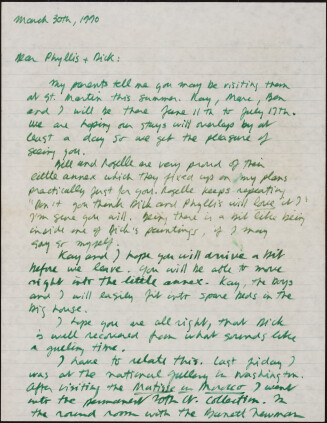 March 30th, 1990
Dear Phyllis + Dick:
My parents tell me you may be visiting them
at St. Martin this summer. Kay, Marc, Ben
and I will be there June 11th to July 17th.
We are hoping our stays will overlap by at
least a day so we get the pleasure of
seeing you.
Bill and Roselle are very proud of their
little annex which they fixed up on my plans
practically just for you. Roselle keeps repeating
"Don't you think Dick and Phyllis will love it?"
I'm sure you will. Being there is a bit like being
inside one of Dick's paintings, if I may
say so myself.
Kay and I hope you will arrive a bit
before we leave. You will be able to move
right into the little annex. Kay, the boys
and I will easily fit into spare beds in the
big house.
I hope you are all right, that Dick
is well recovered from what sounds like
a gueling time.
I have to relate this. Last friday I
was at the National Gallery in Washington.
After visiting the Matisse in Morocco I went
into the permanent 20th C. Collection. In
the round room with the Barnett Newman